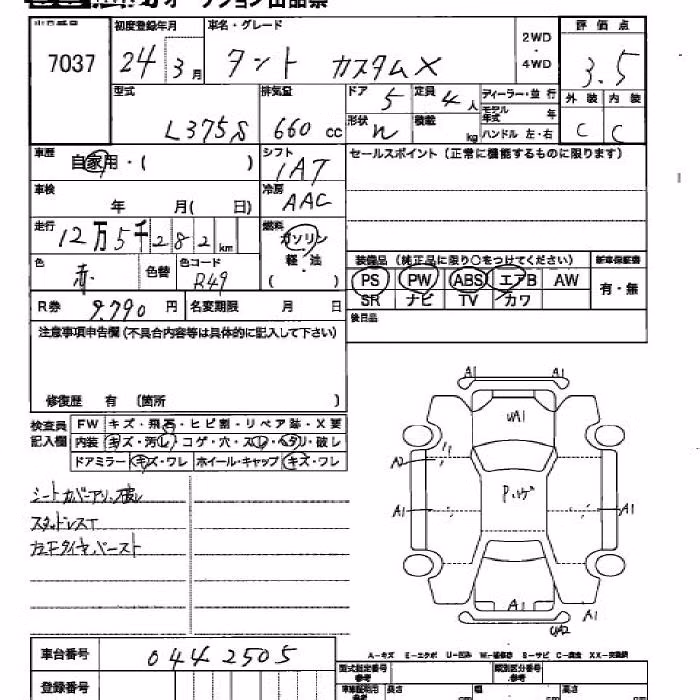 オークション出品票
出品番号 初度登録年月 車名・グレード 2WD・4WD 評価点
7037 24 3月 タント カスタムX 3.5
型式 排気量 ドア 5 定員 4人 ディーラー・並行 外装 内装
L375S 660cc 形状 積載 kg モデル年式 年 C C
ハンドル 左・右
車歴 自家用・( ) シフト IAT セールスポイント (正常に機能するものに限ります)
車検 年 月( 日) 冷房 AAC
走行 12万5千282km 燃料 ガソリン
軽・油
( )
色 赤 色替 色コード R49
装備品 (純正品に限り○をつけてください) 新車保証書
PS PW ABS エアB AW 有・無
SR ナビ TV カワ
R券 9,790円 名変期限 月 日 後日品
注意事項申告欄(不具合内容等は具体的に記入して下さい)
修復歴 有 (箇所 )
検査員記入欄 FW キズ・飛石・ヒビ割・リペア跡・X要
内装 キズ・汚レ・コゲ・穴・スレ・ヘタリ・破レ
ドアミラー キズ・ワレ ホイール・キャップ キズ・ワレ
スタッドレスT
A1 A1
UA1
A2
A1 A1
A1 A1
A-キズ E-エクボ U-凹み W-補修跡 S-サビ C-腐食 XX-交換済
車台番号 0442505
登録番号
型式指定番号 類別区分番号
長さ 幅 高さ